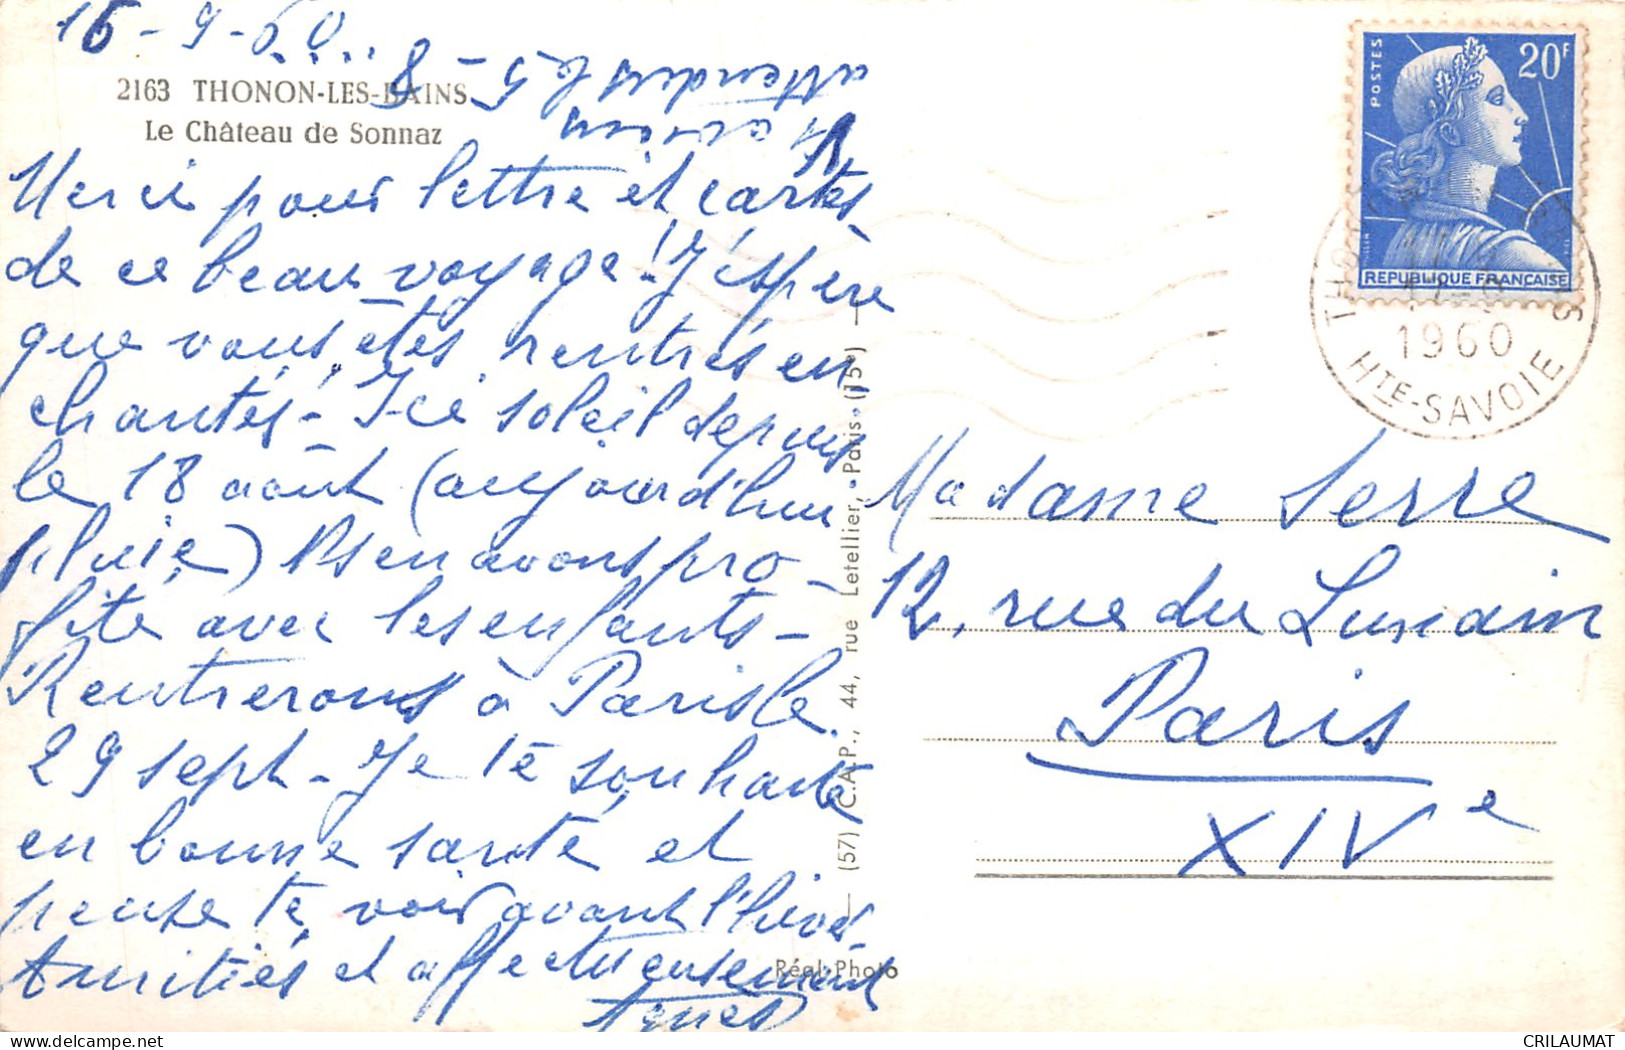 16-9-60....
2163 THONON-LES-BAINS
Le Château de Sonnaz
Merci pour lettre et cartes
de ce beau voyage! J'espère
que vous êtes rentrés en
chantés - Ici soleil depuis
le 18 août (aujourd'hui
pluie) Ns en avons pro-
fité avec les enfants -
Rentrerons à Paris le
29 sept - Je te souhaite
en bonne santé et
pense te voir avant l'hiver
Amitiés et affectueusement
Agnès
attendus le 5 - 8
(57) C.A.P., 44, rue Letellier, Paris (15e)
Réal-Photo
POSTES
20F
REPUBLIQUE FRANÇAISE
1960
HTE-SAVOIE
Madame Serre
12, rue du Lunain
Paris
XIVe
CRILAUMAT